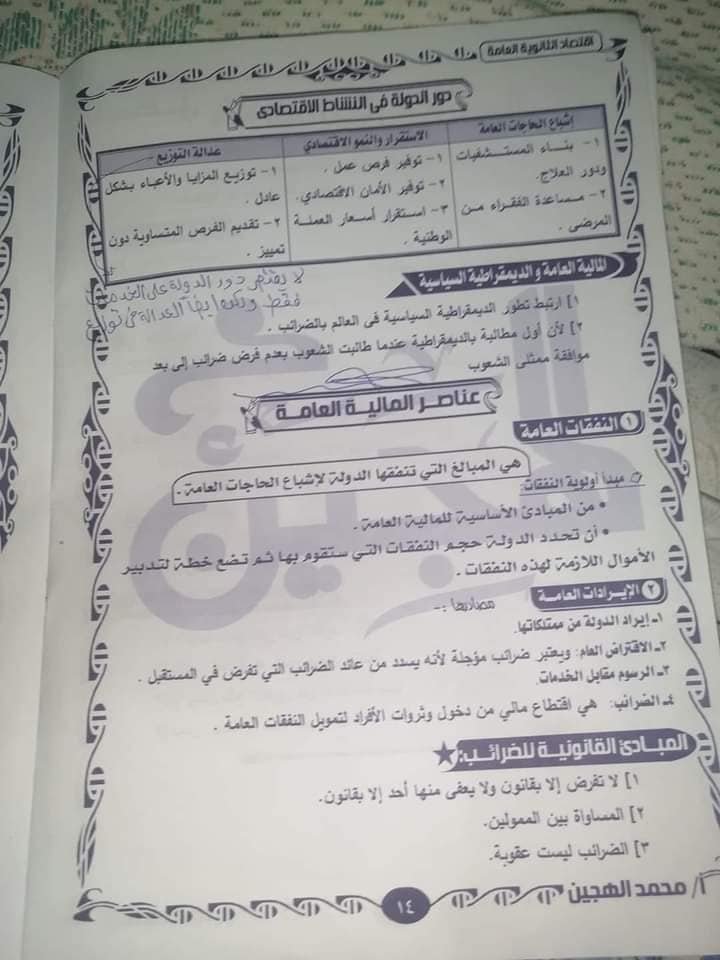 اقتصاد الثانوية العامة
دور الدولة فى النشاط الاقتصادى
إشباع الحاجات العامة
١- بناء المستشفيات
ودور العلاج.
٢- مساعدة الفقراء من
المرضى .
الاستقرار والنمو الاقتصادي
١- توفير فرص عمل .
٢- توفير الأمان الاقتصادي.
٣- استقرار أسعار العملة
الوطنية .
عدالة التوزيع
١- توزيع المزايا والأعباء بشكل
عادل .
٢- تقديم الفرص المتساوية دون
تمييز .
المالية العامة والديمقراطية السياسية
لا يقتصر دور الدولة على
فقط العدالة
١] ارتبط تطور الديمقراطية السياسية فى العالم بالضرائب .
٢] لأن أول مطالبة بالديمقراطية عندما طالبت الشعوب بعدم فرض ضرائب إلى بعد
موافقة ممثلى الشعوب
عناصر المالية العامة
١ النفقات العامة
هي المبالغ التي تنفقها الدولة لإشباع الحاجات العامة .
مبدأ أولوية النفقات:
• من المبادئ الأساسية للمالية العامة .
• أن تحدد الدولة حجم النفقات التي ستقوم بها ثم تضع خطة لتدبير
الأموال اللازمة لهذه النفقات .
٢ الإيرادات العامة مصادرها :-
١ـ إيراد الدولة من ممتلكاتها.
٢ـ الاقتراض العام: ويعتبر ضرائب مؤجلة لأنه يسدد من عائد الضرائب التي تفرض في المستقبل .
٣ـ الرسوم مقابل الخدمات
٤ـ الضرائب: هي اقتطاع مالي من دخول وثروات الأفراد لتمويل النفقات العامة .
المبادئ القانونية للضرائب:
١] لا تفرض إلا بقانون ولا يعفى منها أحد إلا بقانون.
٢] المساواة بين الممولين.
٣] الضرائب ليست عقوبة.
أ/ محمد الهجين
١٤